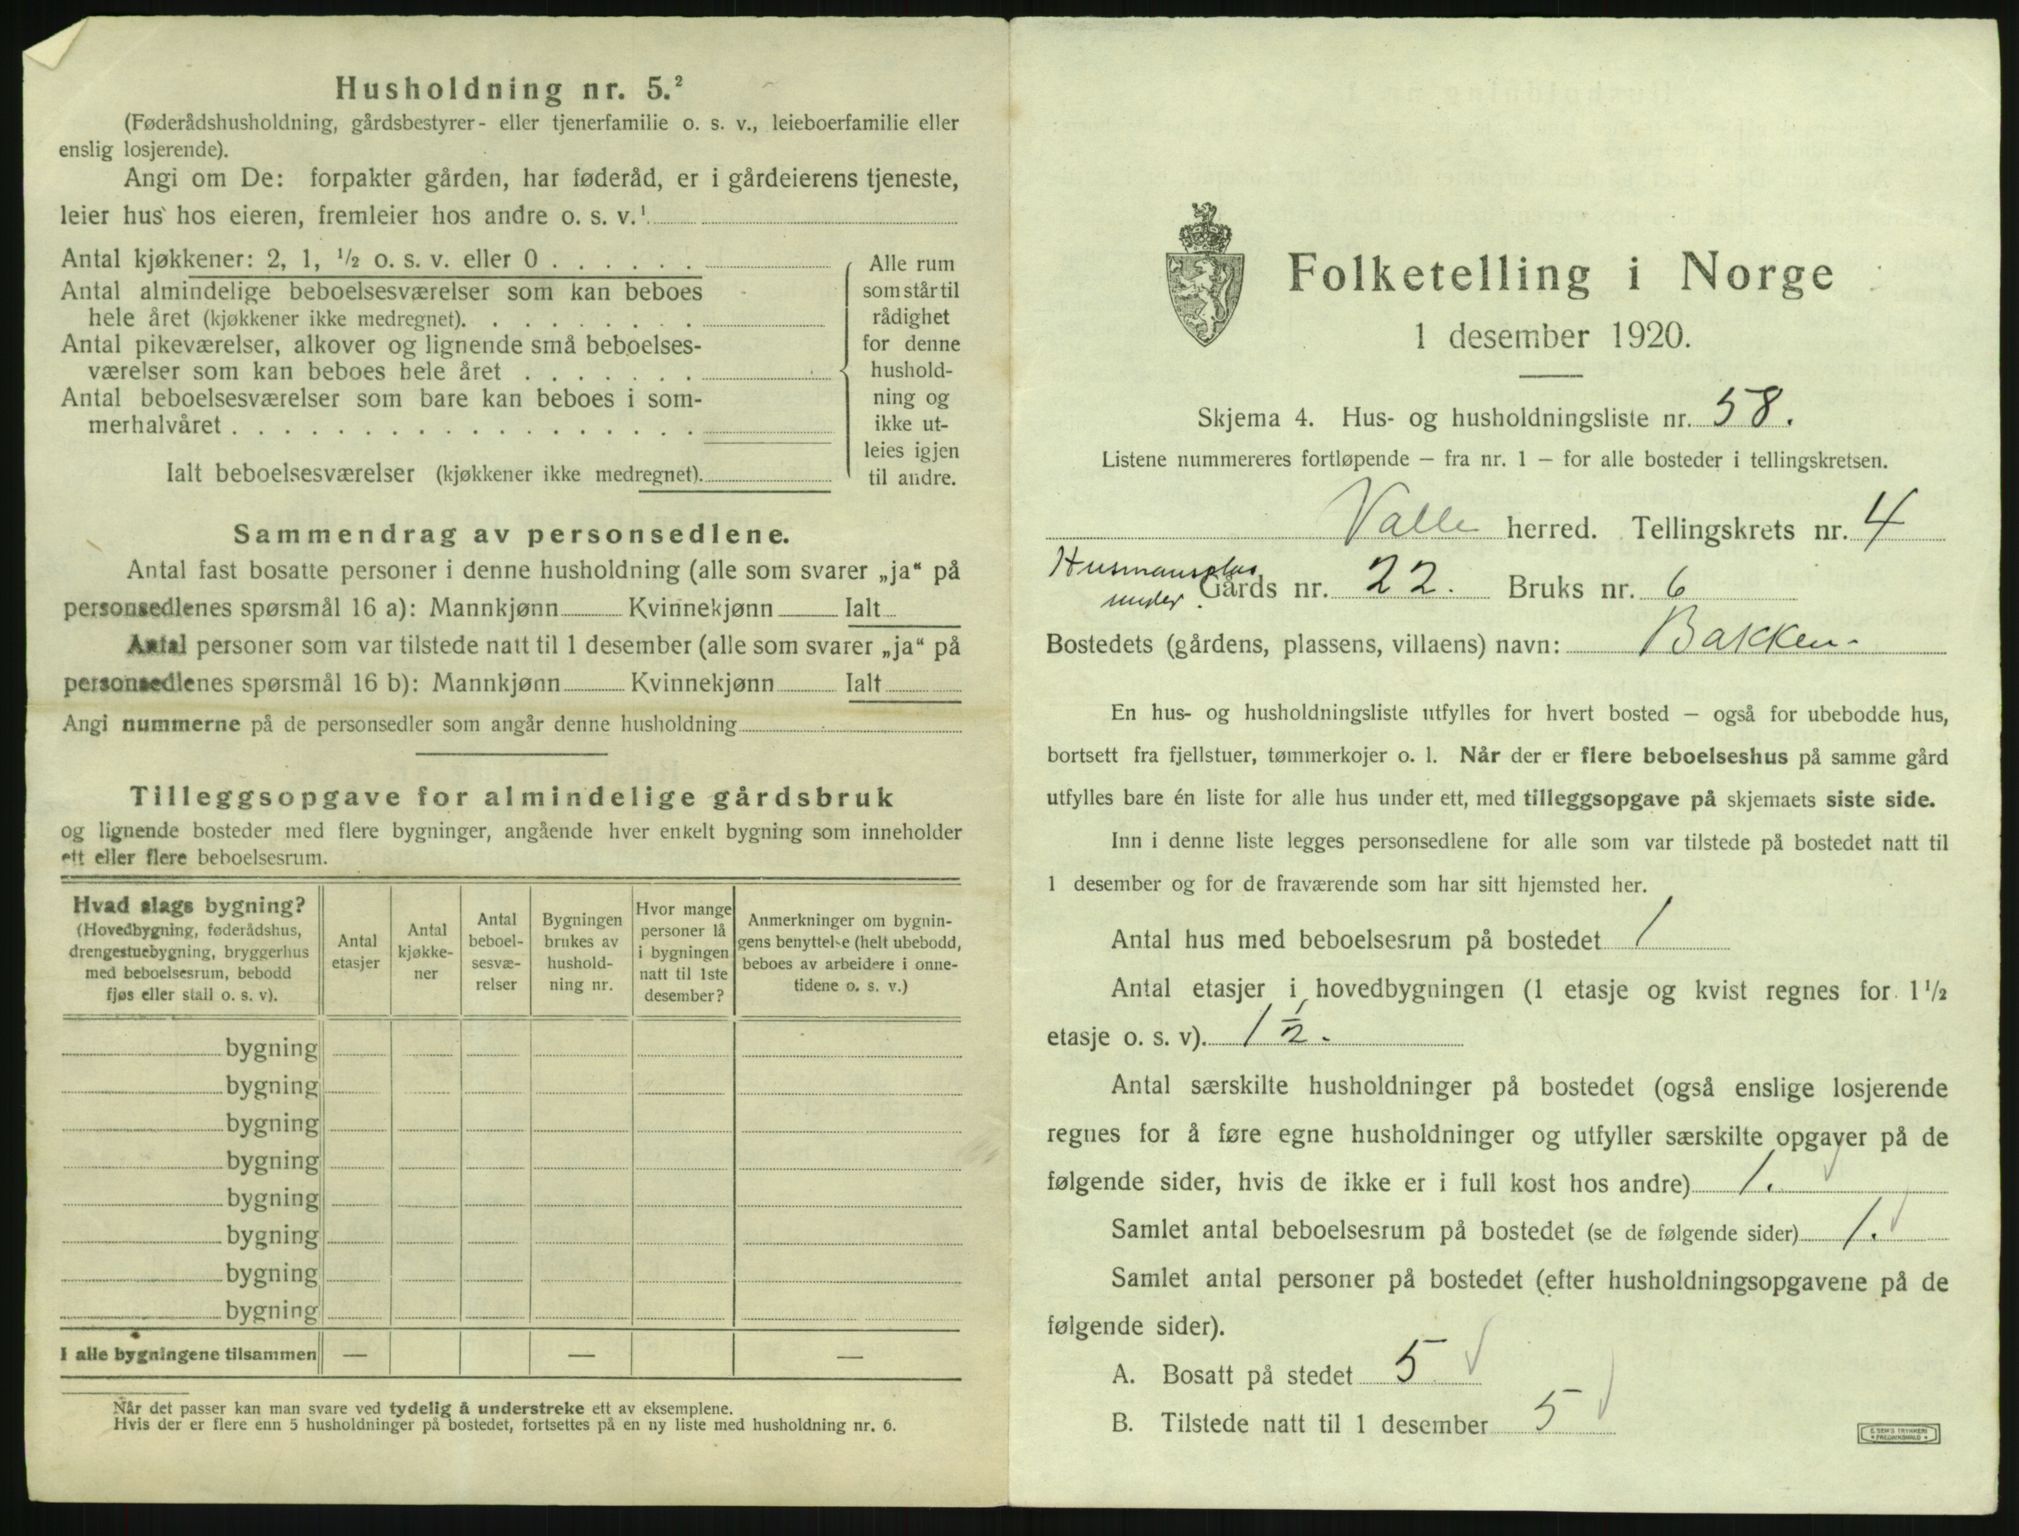 Husholdning nr. 5.²
(Føderådshusholdning, gårdsbestyrer- eller tjenerfamilie o. s. v., leieboerfamilie eller
enslig losjerende).
Angi om De: forpakter gården, har føderåd, er i gårdeierens tjeneste,
leier hus hos eieren, fremleier hos andre o. s. v.¹
Antal kjøkkener: 2, 1, ½ o. s. v. eller 0 . . . . . .
Antal almindelige beboelsesværelser som kan beboes
hele året (kjøkkener ikke medregnet). . . . . . . . .
Antal pikeværelser, alkover og lignende små beboelses-
værelser som kan beboes hele året . . . . . . .
Antal beboelsesværelser som bare kan beboes i som-
merhalvåret . . . . . . . . . . . . . . . . . .
Ialt beboelsesværelser (kjøkkener ikke medregnet).
Alle rum
som står til
rådighet
for denne
hushold-
ning og
ikke ut-
leies igjen
til andre.
Sammendrag av personsedlene.
Antal fast bosatte personer i denne husholdning (alle som svarer „ja“ på
personsedlenes spørsmål 16 a): Mannkjønn Kvinnekjønn Ialt
Antal personer som var tilstede natt til 1 desember (alle som svarer „ja“ på
personsedlenes spørsmål 16 b): Mannkjønn Kvinnekjønn Ialt
Angi nummerne på de personsedler som angår denne husholdning
Tilleggsopgave for almindelige gårdsbruk
og lignende bosteder med flere bygninger, angående hver enkelt bygning som inneholder
ett eller flere beboelsesrum.
Hvad slags bygning?
(Hovedbygning, føderådshus,
drengestuebygning, bryggerhus
med beboelsesrum, bebodd
fjøs eller stall o. s. v).
Antal
etasjer
Antal
kjøkke-
ner
Antal
beboel-
sesvæ-
relser
Bygningen
brukes av
hushold-
ning nr.
Hvor mange
personer lå
i bygningen
natt til 1ste
desember?
Anmerkninger om bygnin-
gens benyttelse (helt ubebodd,
beboes av arbeidere i onne-
tidene o. s. v.)
bygning
bygning
bygning
bygning
bygning
bygning
bygning
bygning
I alle bygningene tilsammen — — —
Når det passer kan man svare ved tydelig å understreke ett av eksemplene.
Hvis der er flere enn 5 husholdninger på bostedet, fortsettes på en ny liste med husholdning nr. 6.
Folketelling i Norge
1 desember 1920.
Skjema 4. Hus- og husholdningsliste nr. 58.
Listene nummereres fortløpende — fra nr. 1 — for alle bosteder i tellingskretsen.
Valle herred. Tellingskrets nr. 4
Husmansplas
under Gårds nr. 22. Bruks nr. 6
Bostedets (gårdens, plassens, villaens) navn: Bakken-
En hus- og husholdningsliste utfylles for hvert bosted — også for ubebodde hus,
bortsett fra fjellstuer, tømmerkojer o. l. Når der er flere beboelseshus på samme gård
utfylles bare én liste for alle hus under ett, med tilleggsopgave på skjemaets siste side.
Inn i denne liste legges personsedlene for alle som var tilstede på bostedet natt til
1 desember og for de fraværende som har sitt hjemsted her.
Antal hus med beboelsesrum på bostedet 1
Antal etasjer i hovedbygningen (1 etasje og kvist regnes for 1½
etasje o. s. v). 1½.
Antal særskilte husholdninger på bostedet (også enslige losjerende
regnes for å føre egne husholdninger og utfyller særskilte opgaver på de
følgende sider, hvis de ikke er i full kost hos andre) 1.
Samlet antal beboelsesrum på bostedet (se de følgende sider) 1.
Samlet antal personer på bostedet (efter husholdningsopgavene på de
følgende sider).
A. Bosatt på stedet 5
B. Tilstede natt til 1 desember 5
E. SEM'S TRYKKERI
FREDRIKSHALD